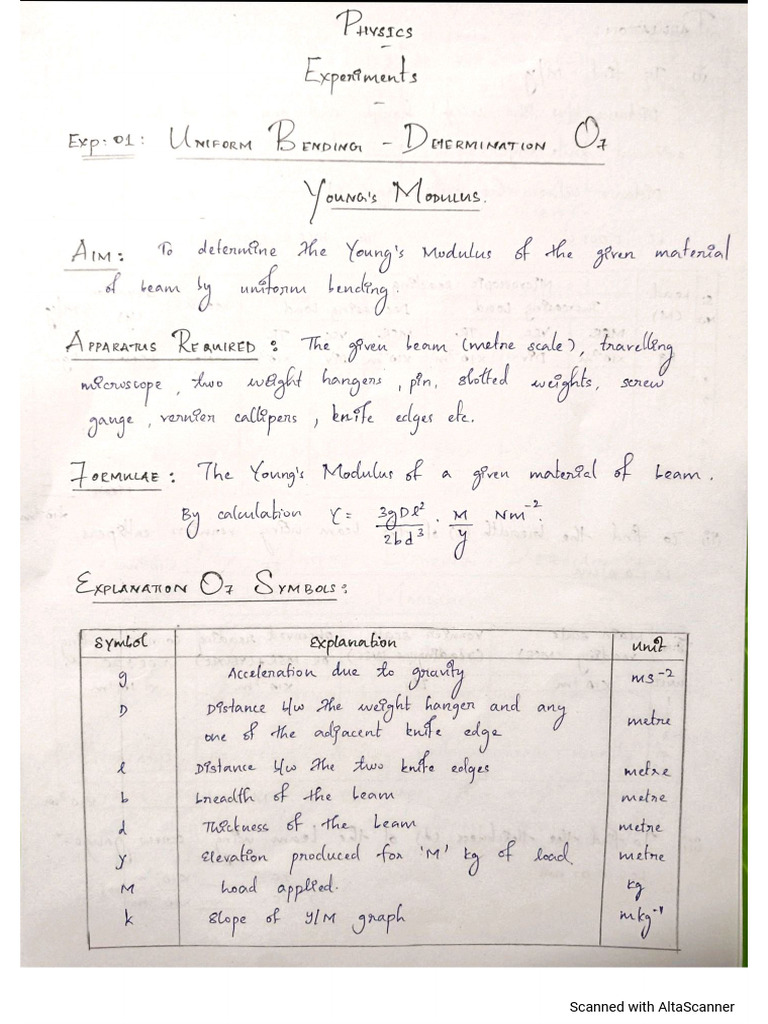 PHYSICS
Experiments
Exp: 01: UNIFORM BENDING - DETERMINATION OF
YOUNG'S MODULUS.
AIM: To determine the Young's Modulus of the given material
of beam by uniform bending.
APPARATUS REQUIRED: The given beam (metre scale), travelling
microscope, two weight hangers, pin, slotted weights, screw
gauge, vernier callipers, knife edges etc.
FORMULAE: The Young's Modulus of a given material of beam.
By calculation Y = 3gDl²/2bd³ · M/y Nm⁻².
EXPLANATION OF SYMBOLS:
Symbol Explanation Unit
g Acceleration due to gravity ms⁻²
D Distance b/w the weight hanger and any
one of the adjacent knife edge metre
l Distance b/w the two knife edges metre
b breadth of the beam metre
d Thickness of the beam metre
y Elevation produced for 'M' kg of load metre
M Load applied. kg
k Slope of y/M graph mkg⁻¹
Scanned with AltaScanner